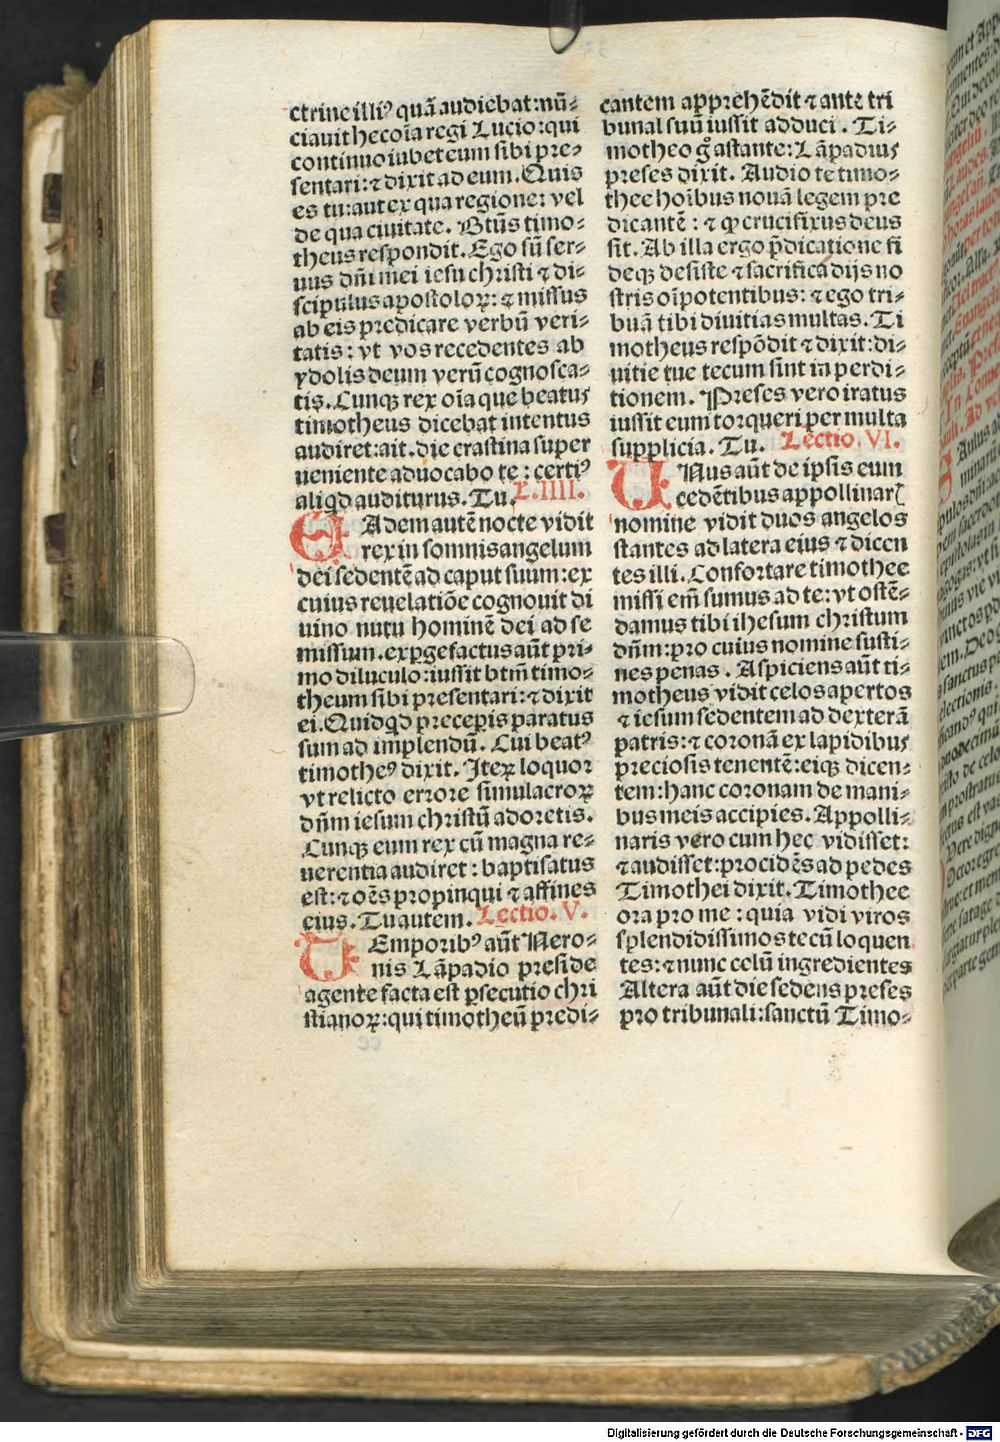 ctrine illiꝰ quā audiebat:nū-
ciauit hec oīa regi Lucio:qui
continuo iubet eum sibi pre-
sentari:⁊ dixit ad eum. Quis
es tu:aut ex qua regione: vel
de qua ciuitate. Btūs timo-
theus respondit. Ego sū ser-
uus dn̄i mei iesu christi ⁊ di-
scipulus apostoloꝝ: ⁊ missus
ab eis predicare verbū veri-
tatis: vt vos recedentes ab
ydolis deum verū cognosca-
tis. Cunqꝫ rex oīa que beatus
timotheus dicebat intentus
audiret:ait. die crastina super
ueniente aduocabo te: certiꝰ
aliqd auditurus. Tu. L. IIII.
EAdem autē nocte vidit
rex in somnis angelum
dei sedentē ad caput suum:ex
cuius reuelatiōe cognouit di
uino nutu hominē dei ad se
missum.exꝑgefactus aūt pri-
mo diluculo:iussit btm̄ timo-
theum sibi presentari:⁊ dixit
ei.Quidqd preceꝑis paratus
sum ad implendū. Cui beatꝰ
timotheꝰ dixit. Iteꝝ loquor
vt relicto errore simulacroꝝ
dn̄m iesum christū adoretis.
Cunqꝫ eum rex cū magna re-
uerentia audiret: baptisatus
est:⁊ oēs propinqui ⁊ affines
eius. Tu autem. Lectio. V.
TEmporibꝰ aūt Nero-
nis Lāpadio preside
agente facta est ꝑsecutio chri
stianoꝝ:qui timotheū predi-
cantem apprehēdit ⁊ ante tri
bunal suū iussit adduci. Ti-
motheo g̊ astante: Lāpadius
preses dixit. Audio te timo-
thee hoībus nouā legem pre
dicantē: ⁊ ꝙ crucifixus deus
sit. Ab illa ergo p̄dicatione fi
deqꝫ desiste ⁊ sacrifica dijs no
stris oīpotentibus: ⁊ ego tri-
buā tibi diuitias multas. Ti
motheus respōdit ⁊ dixit:di-
uitie tue tecum sint in perdi-
tionem. Preses vero iratus
iussit eum torqueri per multa
supplicia. Tu. Lectio. VI.
UNus aūt de ipsis eum
cedētibus appollinarꝭ
nomine vidit duos angelos
stantes ad latera eius ⁊ dicen
tes illi. Confortare timothee
missi em̄ sumus ad te: vt ostē-
damus tibi ihesum christum
dn̄m:pro cuius nomine susti-
nes penas. Aspiciens aūt ti-
motheus vidit celos apertos
⁊ iesum sedentem ad dexterā
patris:⁊ coronā ex lapidibus
preciosis tenentē:eiqꝫ dicen-
tem:hanc coronam de mani-
bus meis accipies. Appolli-
naris vero cum hec vidisset:
⁊ audisset:procidēs ad pedes
Timothei dixit. Timothee
ora pro me: quia vidi viros
splendidissimos tecū loquen
tes:⁊ nunc celū ingredientes
Altera aūt die sedens preses
pro tribunali:sanctū Timo-
Digitalisierung gefördert durch die Deutsche Forschungsgemeinschaft - DFG